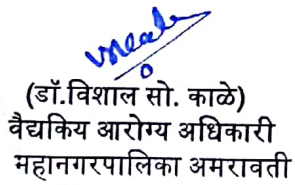 (डॉ.विशाल सो. काळे)
वैद्यकिय आरोग्य अधिकारी
महानगरपालिका अमरावती